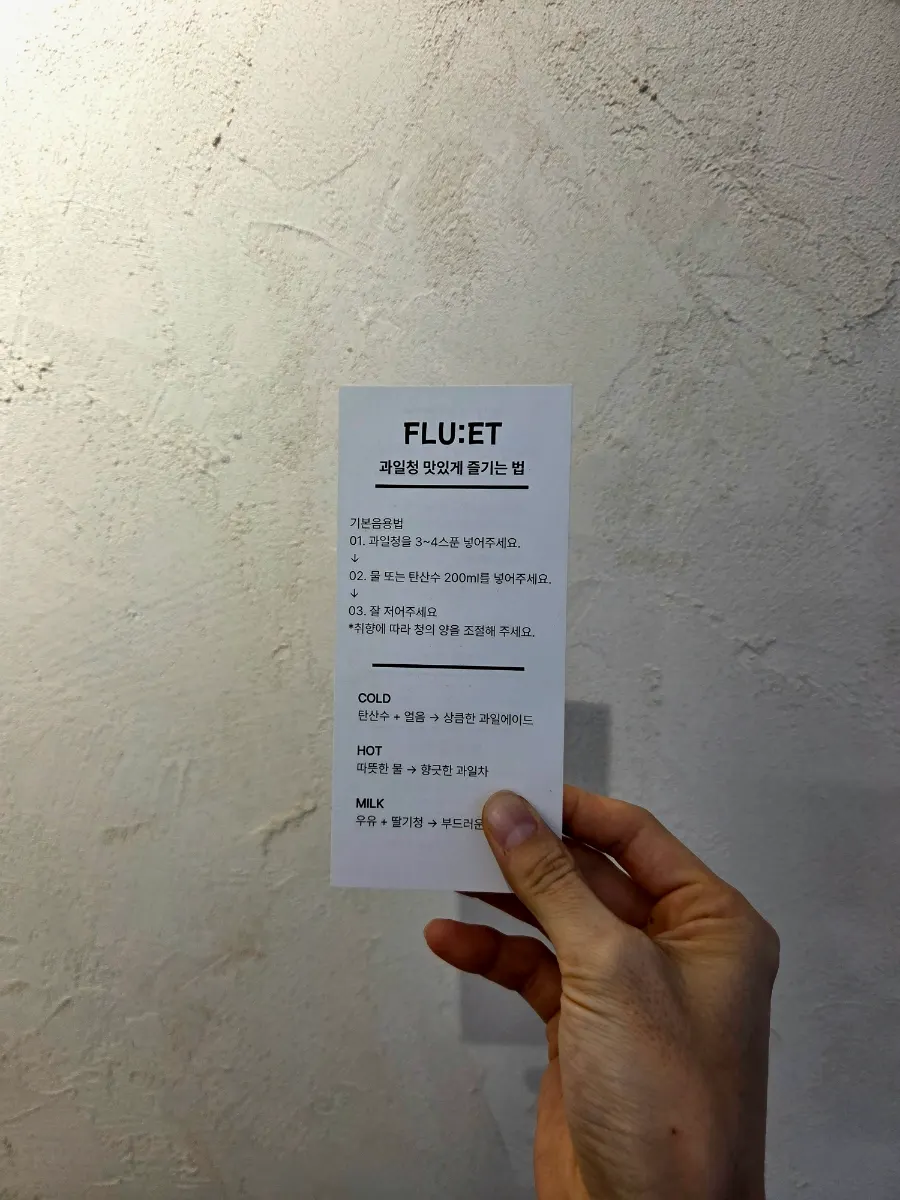 FLU:ET
과일청 맛있게 즐기는 법
기본음용법
01. 과일청을 3~4스푼 넣어주세요.
↓
02. 물 또는 탄산수 200ml를 넣어주세요.
↓
03. 잘 저어주세요
*취향에 따라 청의 양을 조절해 주세요.
COLD
탄산수 + 얼음 → 상큼한 과일에이드
HOT
따뜻한 물 → 향긋한 과일차
MILK
우유 + 딸기청 → 부드러운